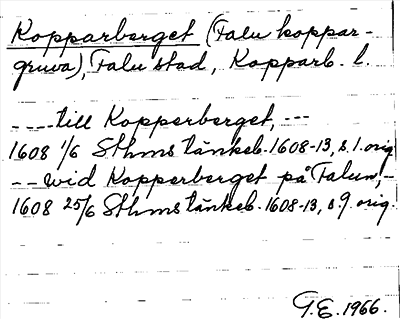 Kopparberget (Falu koppar-
gruva), Falu stad, Kopparb. l.
---- till Kopperberget, ---
1608 1/6 Sthms tänkeb. 1608-13, s. 1. orig.
-- wid Kopperberget på Falun, -
1608 25/6 Sthms tänkeb. 1608-13, s. 9. orig.
G.E. 1966.